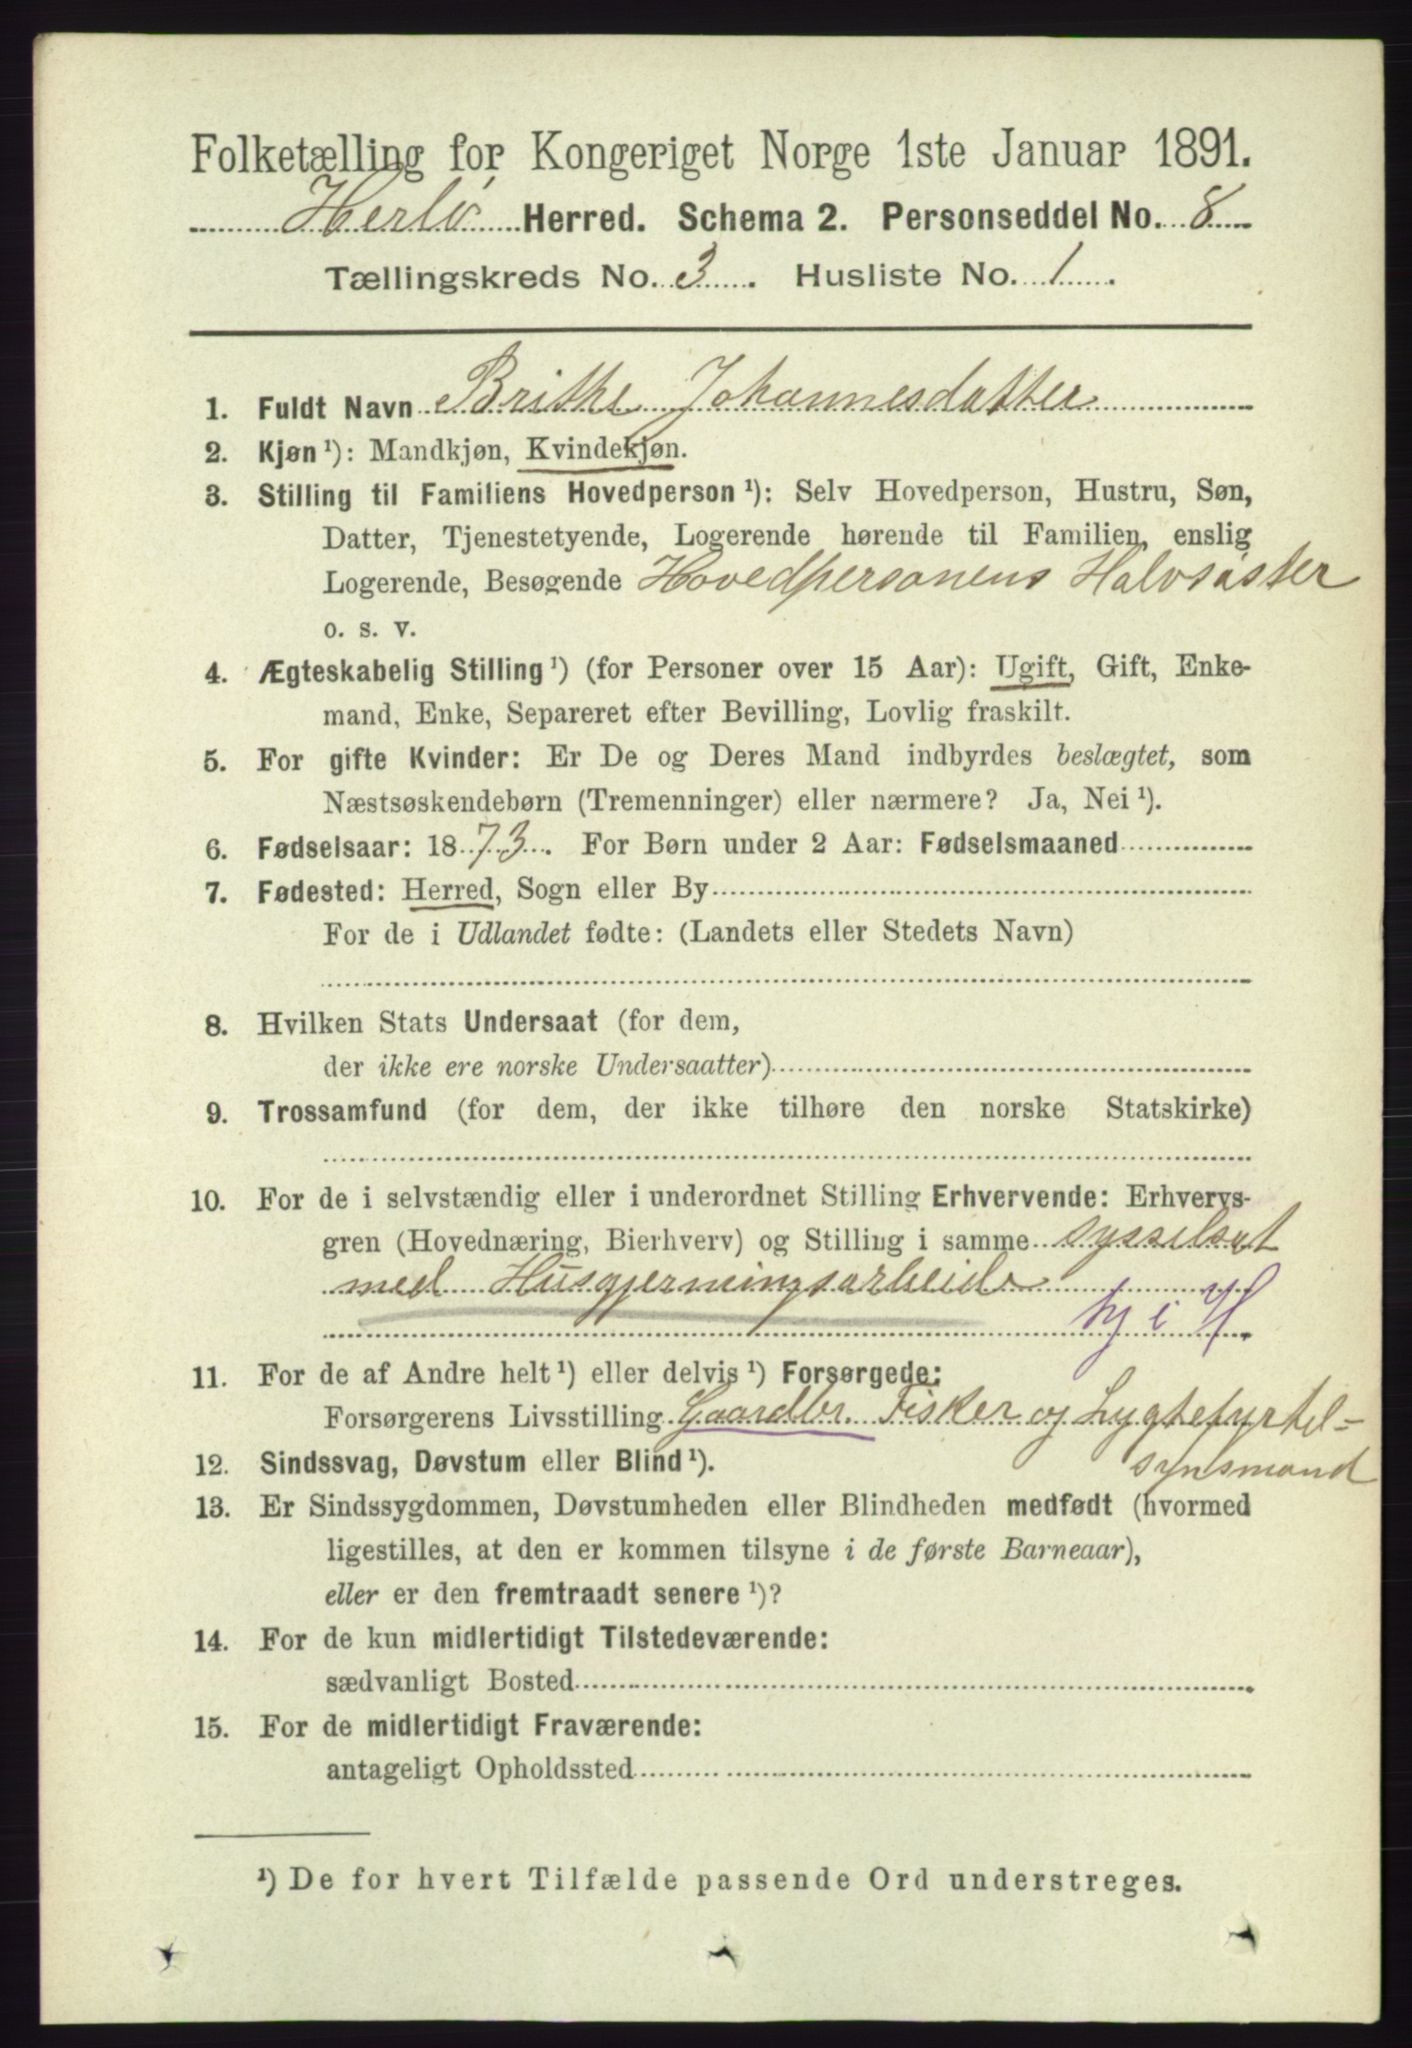 Folketælling for Kongeriget Norge 1ste Januar 1891.
Herlö Herred. Schema 2. Personseddel No. 8
Tællingskreds No. 3. Husliste No. 1.
1. Fuldt Navn Brithe Johannesdatter
2. Kjøn ¹): Mandkjøn, Kvindekjøn.
3. Stilling til Familiens Hovedperson ¹): Selv Hovedperson, Hustru, Søn,
Datter, Tjenestetyende, Logerende hørende til Familien, enslig
Logerende, Besøgende Hovedpersonens Halvsöster
o. s. v.
4. Ægteskabelig Stilling ¹) (for Personer over 15 Aar): Ugift, Gift, Enke-
mand, Enke, Separeret efter Bevilling, Lovlig fraskilt.
5. For gifte Kvinder: Er De og Deres Mand indbyrdes beslægtet, som
Næstsøskendebørn (Tremenninger) eller nærmere? Ja, Nei ¹).
6. Fødselsaar: 1873. For Børn under 2 Aar: Fødselsmaaned
7. Fødested: Herred, Sogn eller By
For de i Udlandet fødte: (Landets eller Stedets Navn)
8. Hvilken Stats Undersaat (for dem,
der ikke ere norske Undersaatter)
9. Trossamfund (for dem, der ikke tilhøre den norske Statskirke)
10. For de i selvstændig eller i underordnet Stilling Erhvervende: Erhvervs-
gren (Hovednæring, Bierhverv) og Stilling i samme sysselsat
med Husgjerningsarbeide
tj i H
11. For de af Andre helt ¹) eller delvis ¹) Forsørgede:
Forsørgerens Livsstilling Gaardbr. Fisker og Lygtefyrtel-
synsmand
12. Sindssvag, Døvstum eller Blind ¹).
13. Er Sindssygdommen, Døvstumheden eller Blindheden medfødt (hvormed
ligestilles, at den er kommen tilsyne i de første Barneaar),
eller er den fremtraadt senere ¹)?
14. For de kun midlertidigt Tilstedeværende:
sædvanligt Bosted
15. For de midlertidigt Fraværende:
antageligt Opholdssted
¹) De for hvert Tilfælde passende Ord understreges.